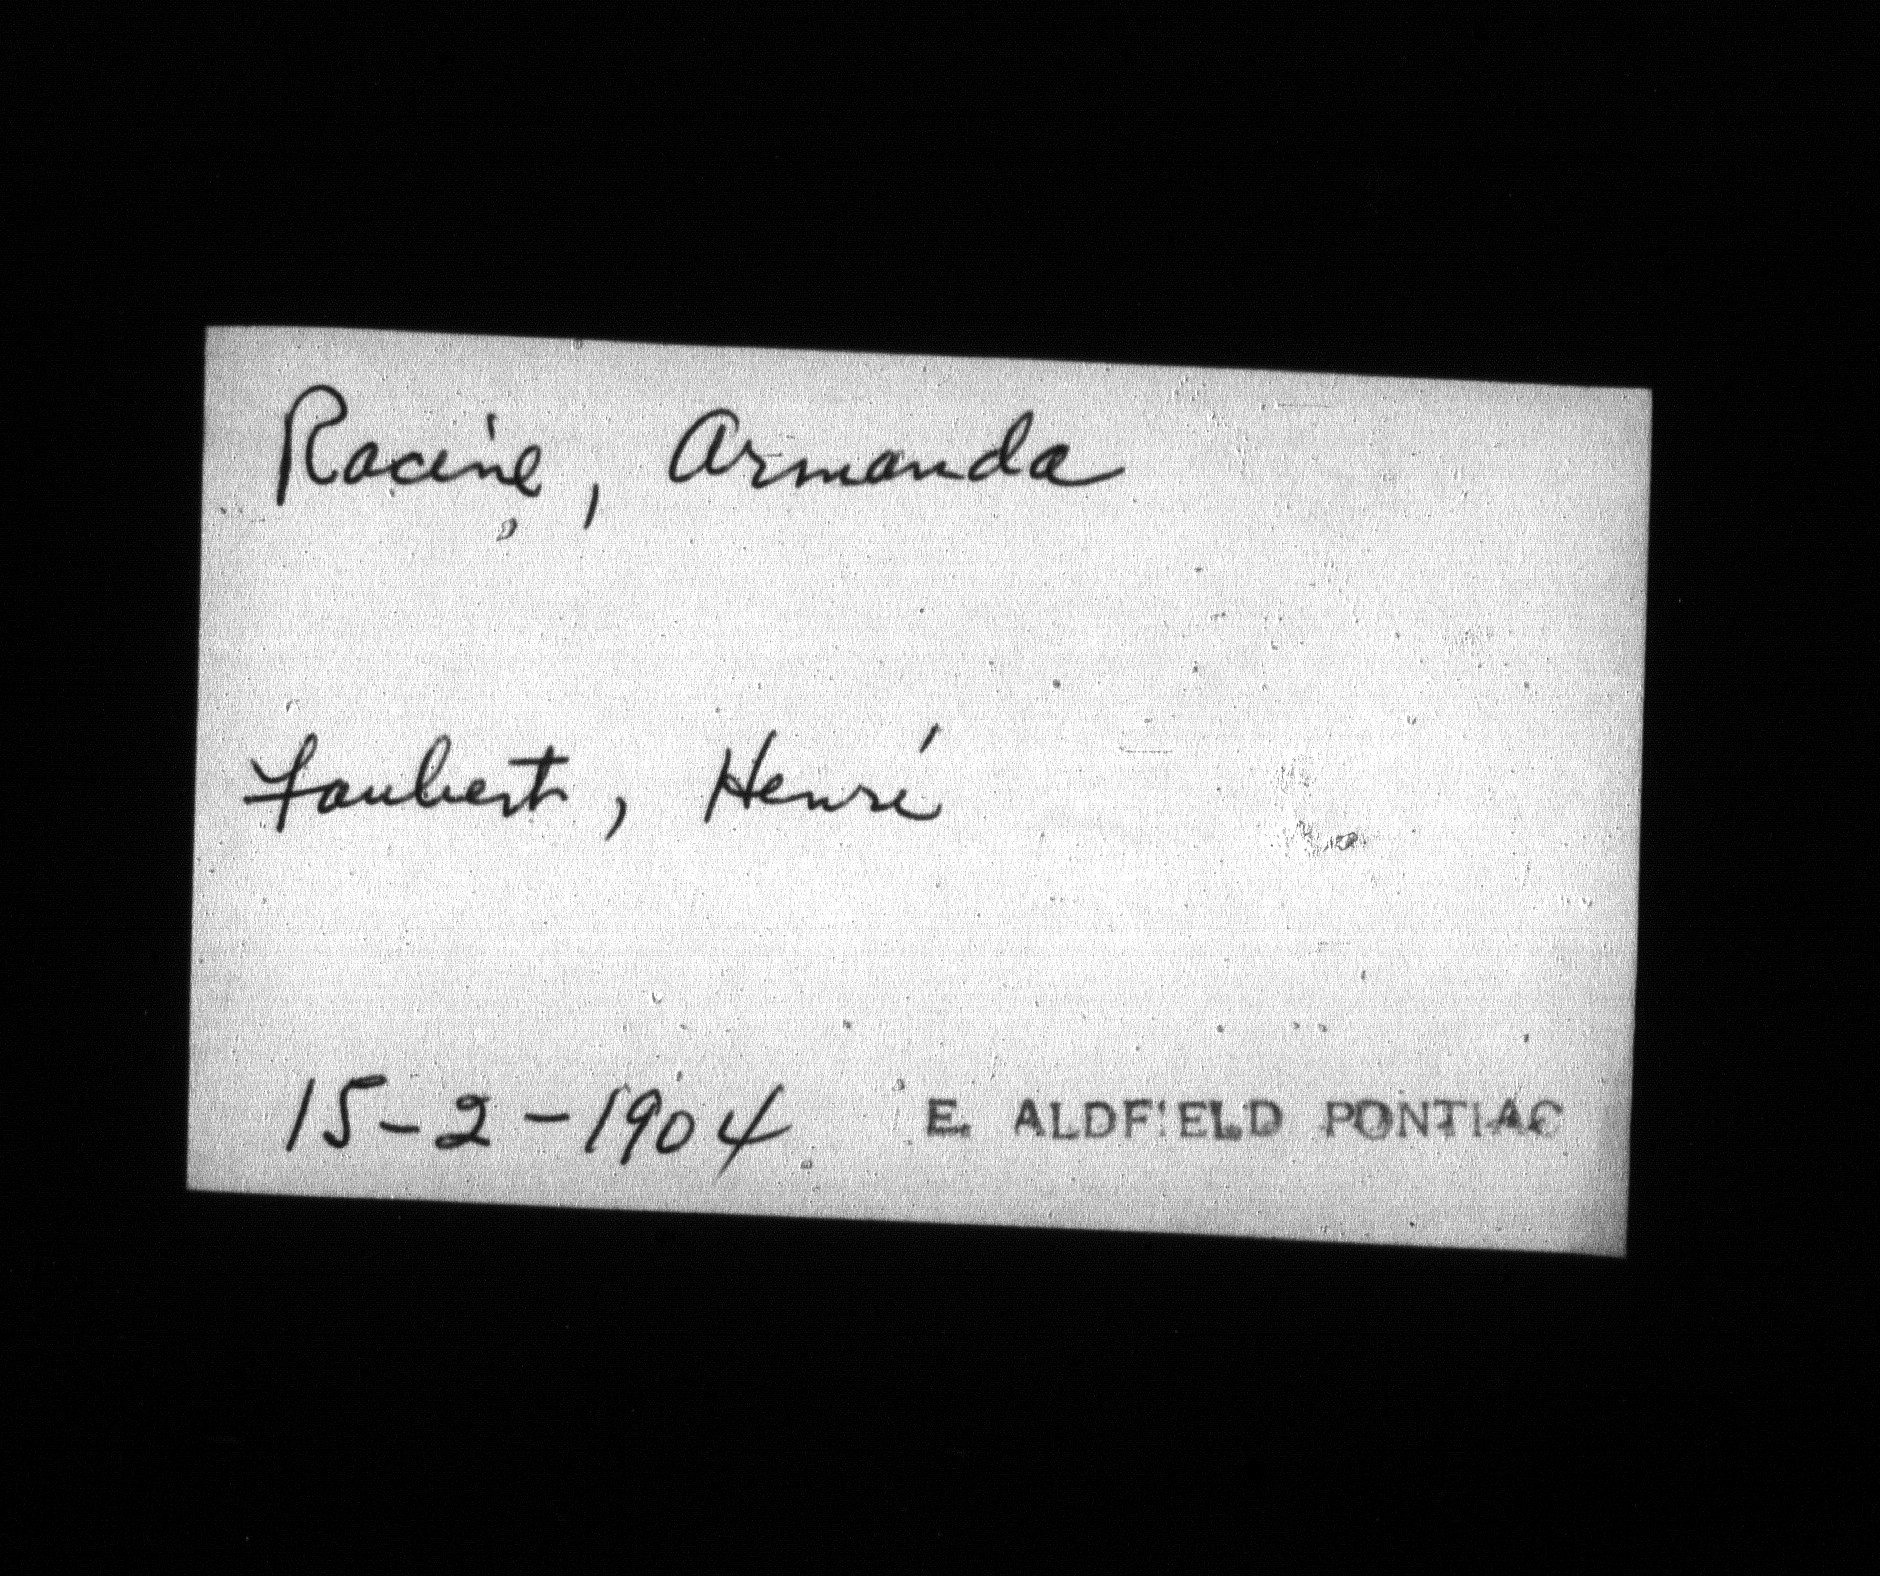 Racine, Armanda
Faubert, Henri
15-2-1904 E. ALDFIELD PONTIAC